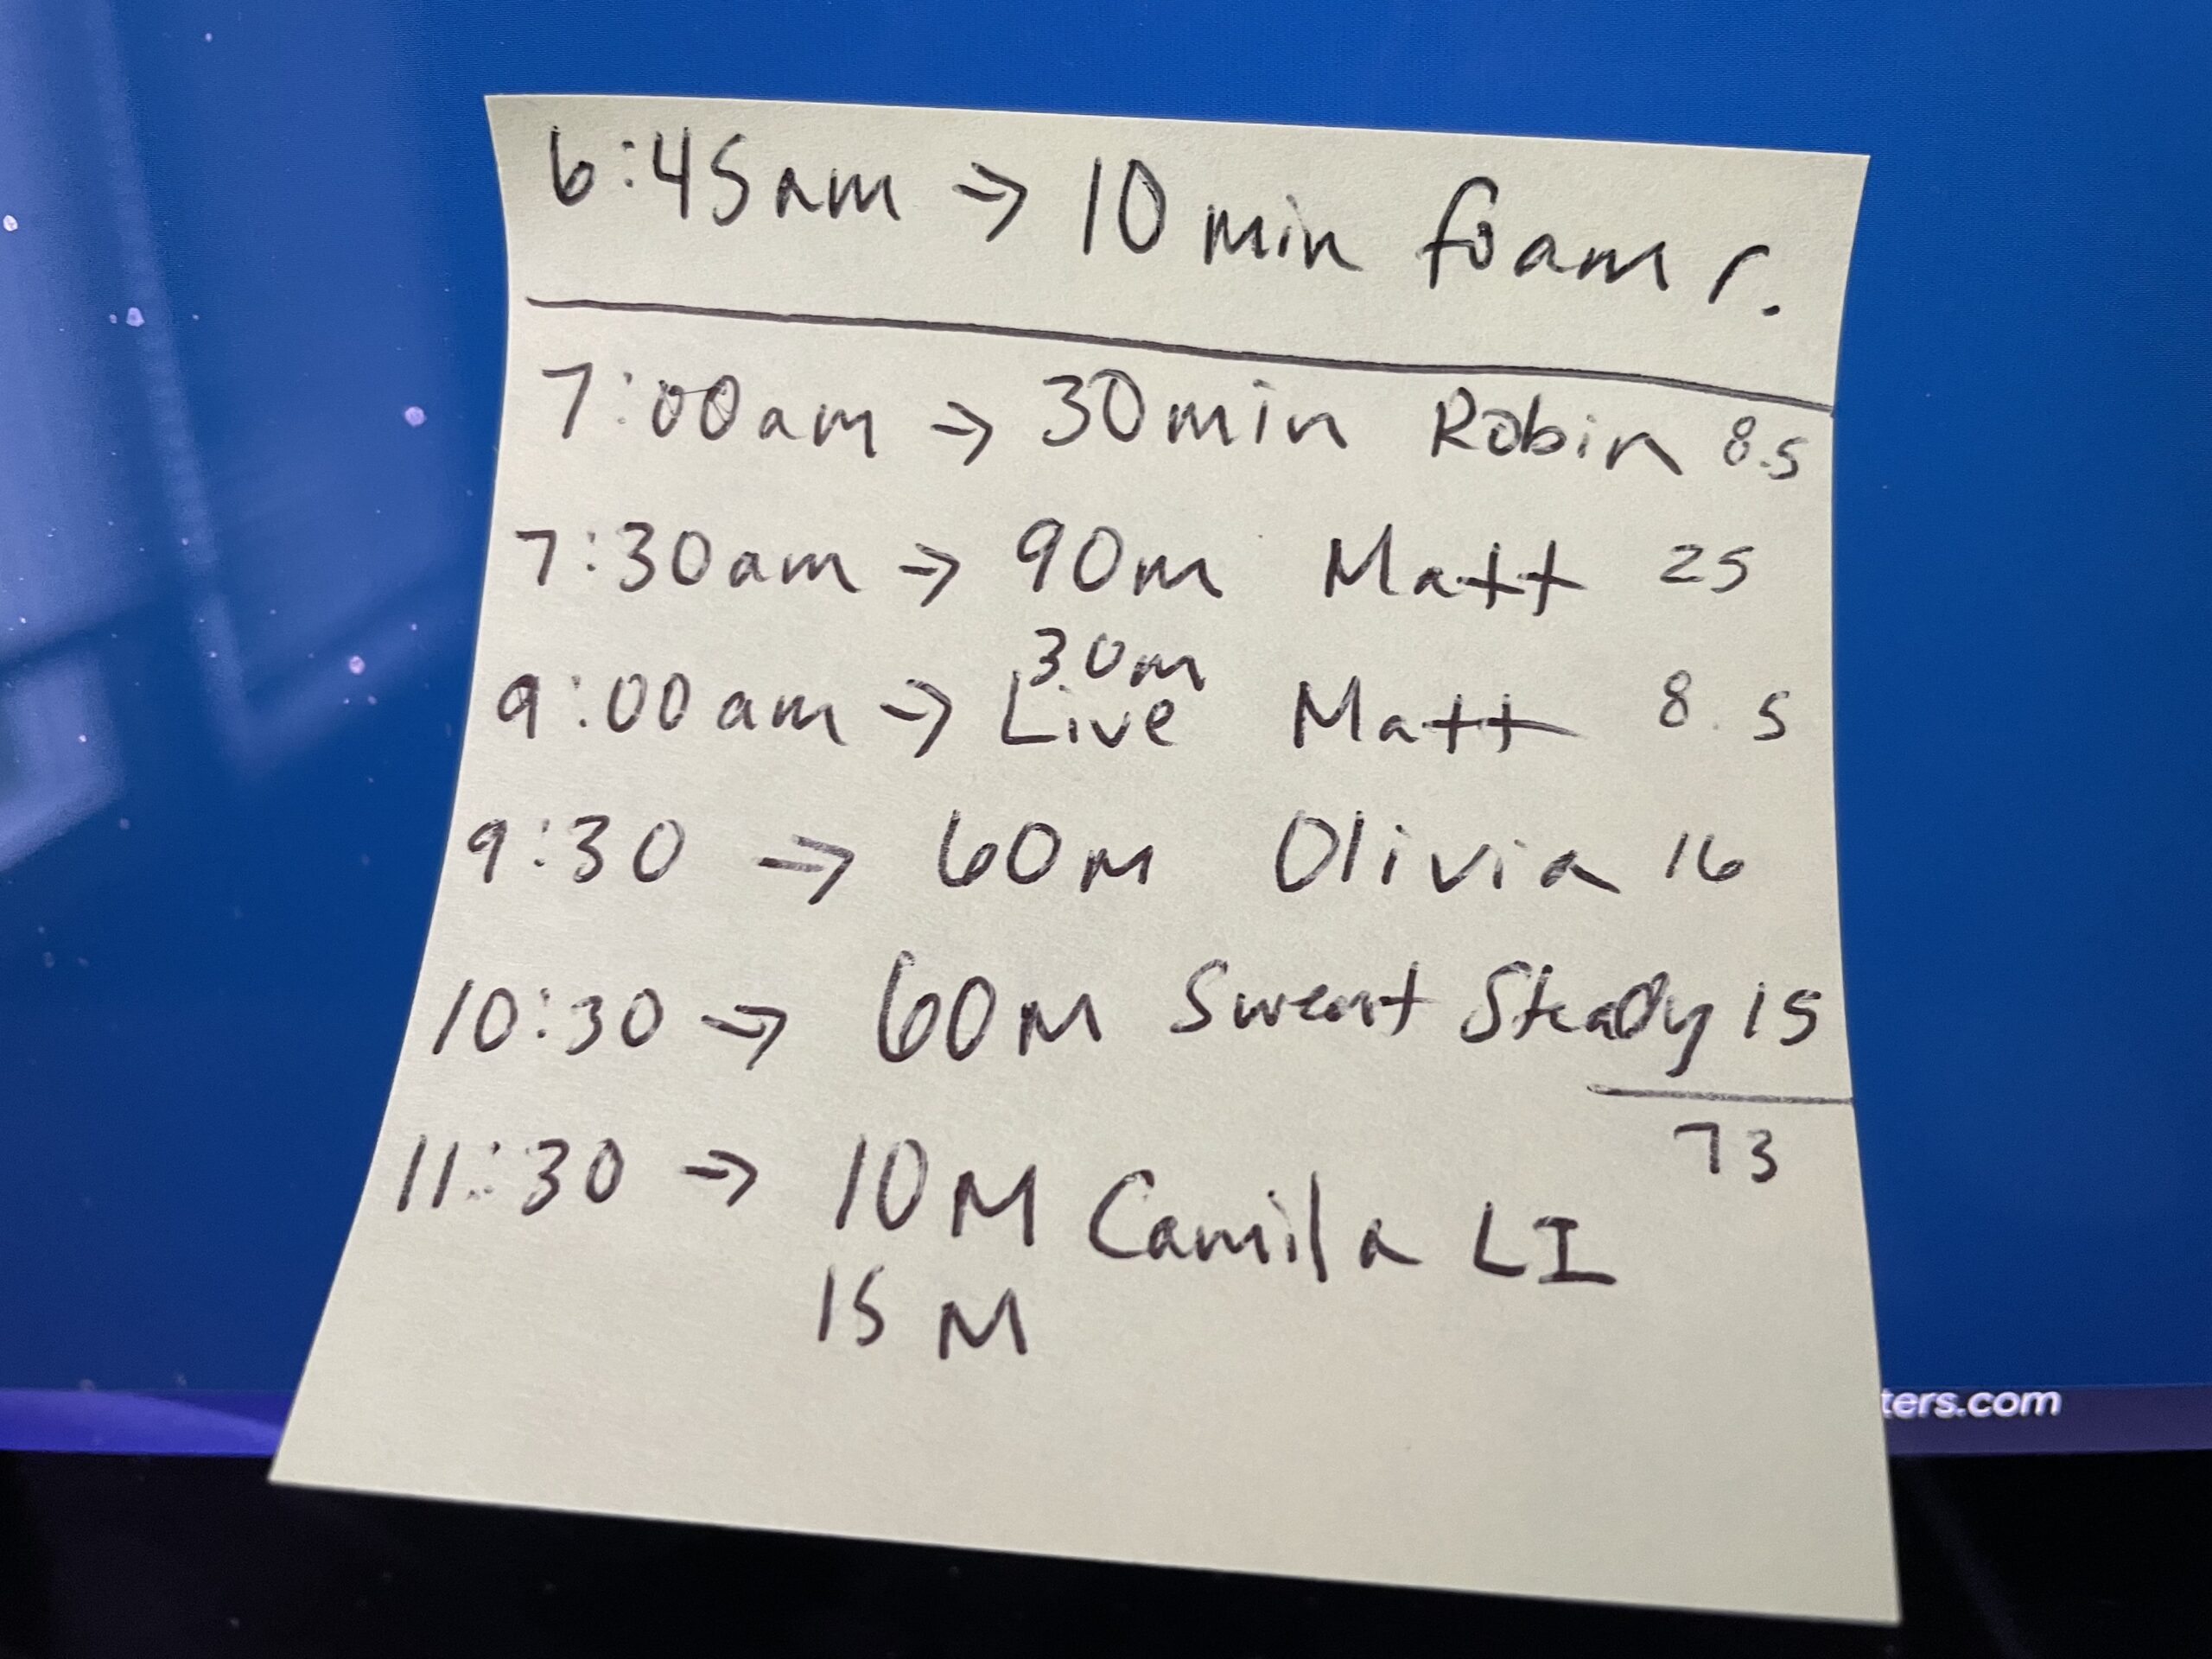 6:45am → 10 min foam r.
7:00am → 30min Robin 8.5
7:30am → 90m Matt 25
30m
9:00am → Live Matt 8.5
9:30 → 60m Olivia 16
10:30 → 60M Sweat Steady 15
73
11:30 → 10M Camila LI
15 M
ters.com